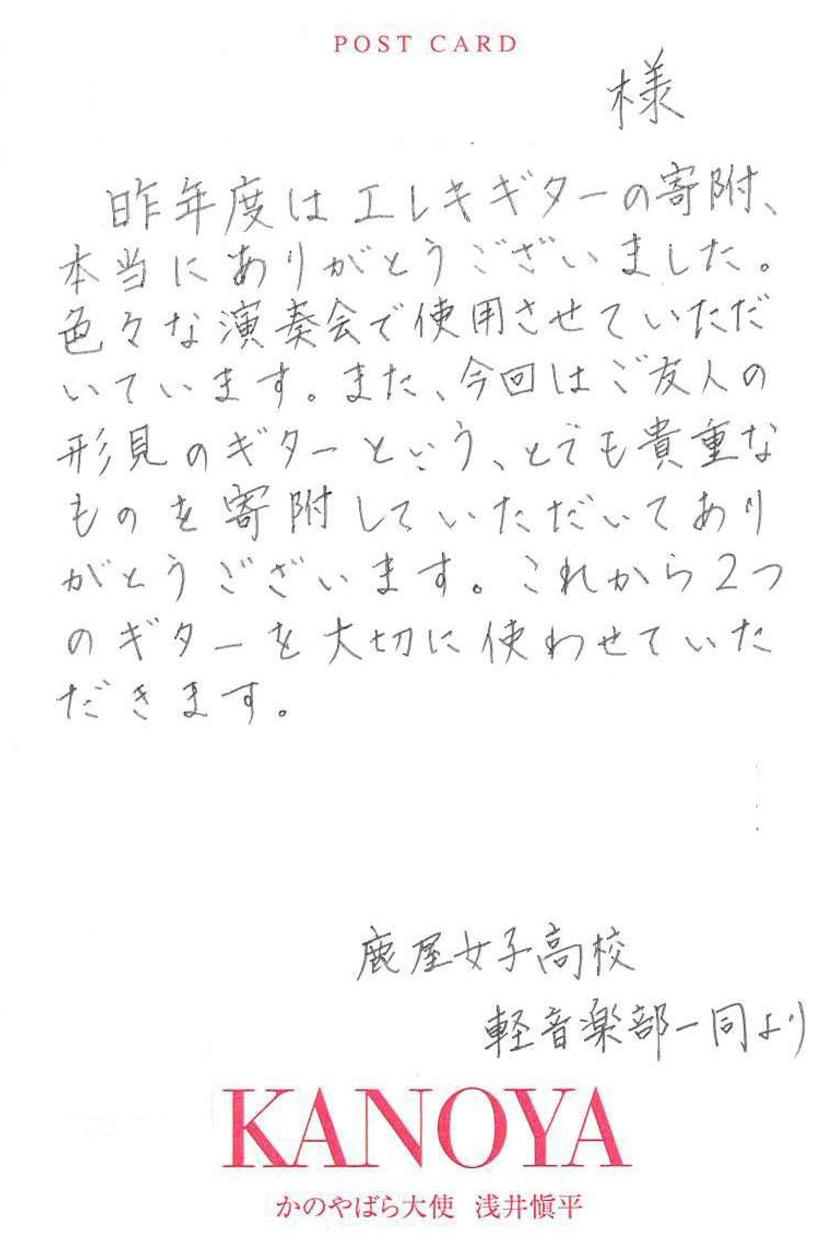 POST CARD
様
昨年度はエレキギターの寄附、
本当にありがとうございました。
色々な演奏会で使用させていただ
いています。また、今回はご友人の
形見のギターという、とても貴重な
ものを寄附していただいてあり
がとうございます。これから2つ
のギターを大切に使わせていた
だきます。
鹿屋女子高校
軽音楽部一同より
KANOYA
かのやばら大使 浅井愼平